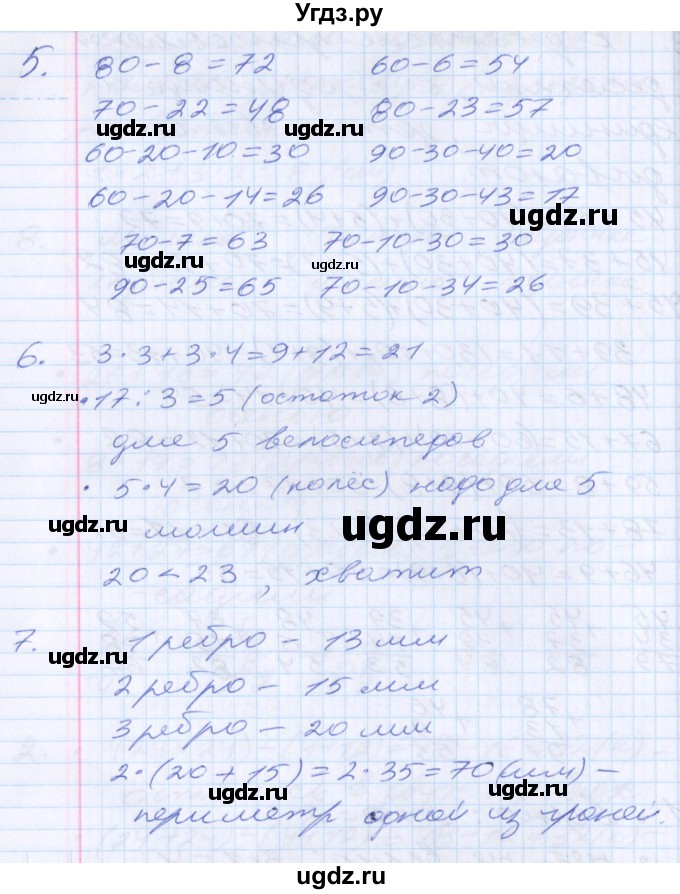 Угдз.ру
5. 80-8=72 60-6=54
70-22=48 80-23=57
ugdz.ru ugdz.ru
60-20-10=30 90-30-40=20
60-20-14=26 90-30-43=17
ugdz.ru
70-7=63 70-10-30=30
ugdz.ru ugdz.ru
90-25=65 70-10-34=26
6. 3·3+3·4=9+12=21
ugdz.ru ·17:3=5 (остаток 2)
для 5 велосипедов
· 5·4=20 (колёс) надо для 5
ugdz.ru машин ugdz.ru
20<23, хватит
7. 1 ребро - 13 мм
ugdz.ru
2 ребро - 15 мм
3 ребро - 20 мм
2·(20+15)=2·35=70(мм)-
ugdz.ru ugdz.ru
периметр одной из граней.
ugdz.ru